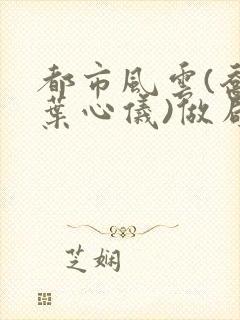 都市風雲(喬
葉心儀)做局
芝嫻